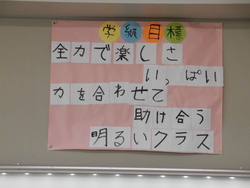 学級目標
全力で楽しさ
いっぱい
力を合わせて
助け合う
明るいクラス